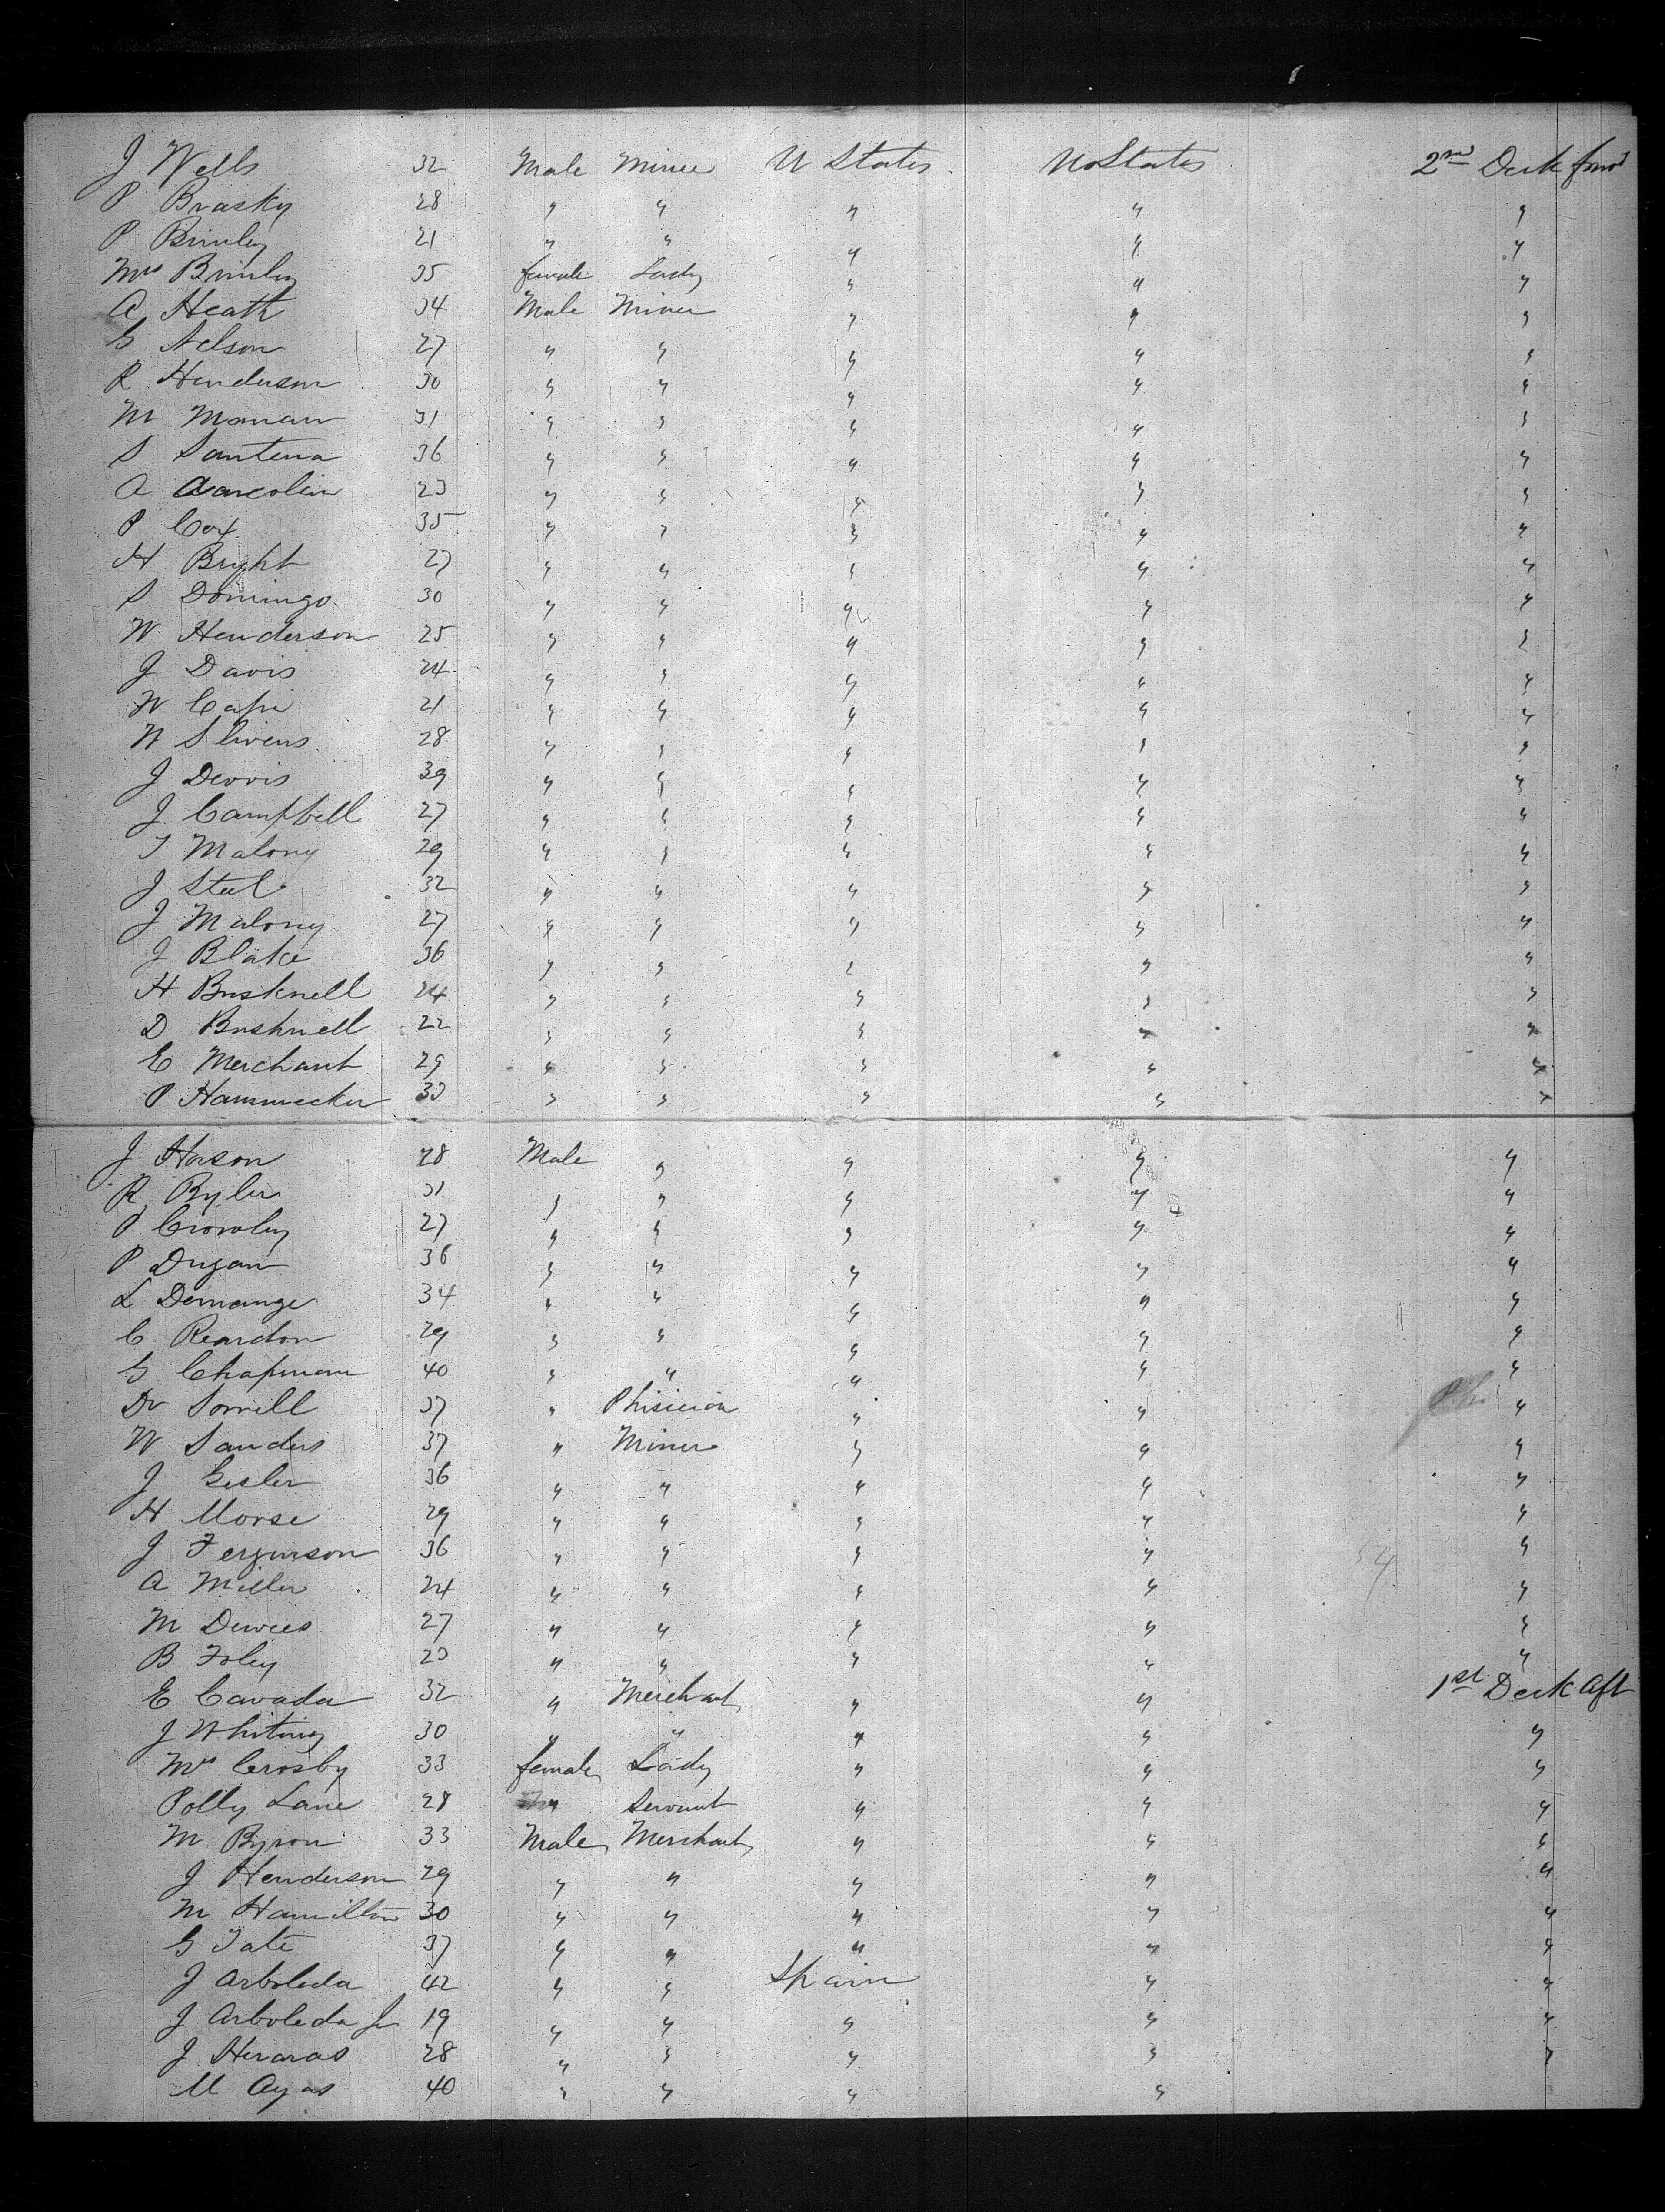 J Wells 32 Male Miner U States U States 2nd Deck forwd
P Brasky 28 " " " " "
P Brinley 21 " " " " "
Mrs Brinley 35 female Lady " " "
A Heath 34 Male Miner " " "
G Nelson 27 " " " " "
R Henderson 30 " " " " "
M Manan 31 " " " " "
S Santena 36 " " " " "
A 23 " " " " "
P Cox 35 " " " " "
H Bright 27 " " " " "
S Domingo 30 " " " " "
W Henderson 25 " " " " "
J Davis 24 " " " " "
W 21 " " " " "
W Slivens 28 " " " " "
J Dervis 39 " " " " "
J Campbell 27 " " " " "
T Malony 29 " " " " "
J Steel 32 " " " " "
J Malony 27 " " " " "
J Blake 36 " " " " "
H Busknell 24 " " " " "
D Bushnell 22 " " " " "
E Merchant 29 " " " " "
P Hansmecker 33 " " " " "
J Hoson 28 Male " " " "
R Byler 31 " " " " "
P Crowley 27 " " " " "
P Dugan 36 " " " " "
L Demange 34 " " " " "
C Reardon 29 " " " " "
G Chapman 40 " " " " "
Dr Sorrell 37 " Phisician " " "
W Sanders 37 " Miner " " "
J Gesler 36 " " " " "
H Morse 29 " " " " "
J Fergurson 36 " " " " "
A Miller 24 " " " " "
M Dewees 27 " " " " "
B Foley 23 " " " " "
E Cavada 32 " Merchant " " 1st Deck Aft
J Whiting 30 " " " " "
Mrs Crosby 33 female Lady " " "
Polly Lane 28 " Servant " " "
M Byron 33 Male Merchant " " "
J Henderson 29 " " " " "
M Hamilton 30 " " " " "
G Tate 37 " " " " "
J Arboleda 42 " " Spain " "
J Arboleda Jr 19 " " " " "
J Heraras 28 " " " " "
M Ayas 40 " " " "